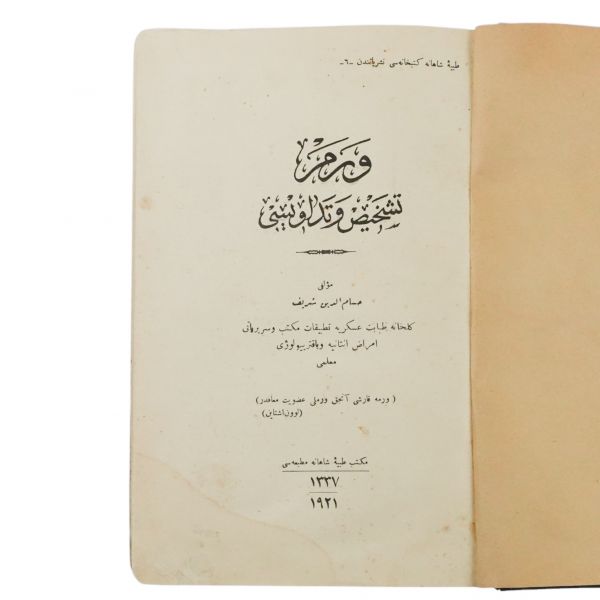 طبیهٔ شاهانه کتبخانه‌سی نشریاتندن -٦-
ورم
تشخیص و تداویسی
مؤلفی
حسام الدین شریف
کلخانه طبابت عسکریه تطبیقات مکتب و سریریاتی
امراض انتانیه و باقتریولوژی
معلمی
( ورمه قارشی آنجق ورملی عضویت معافدر )
(لوون‌اشتاین)
مکتب طبیهٔ شاهانه مطبعه‌سی
١٣٣٧
١٩٢١